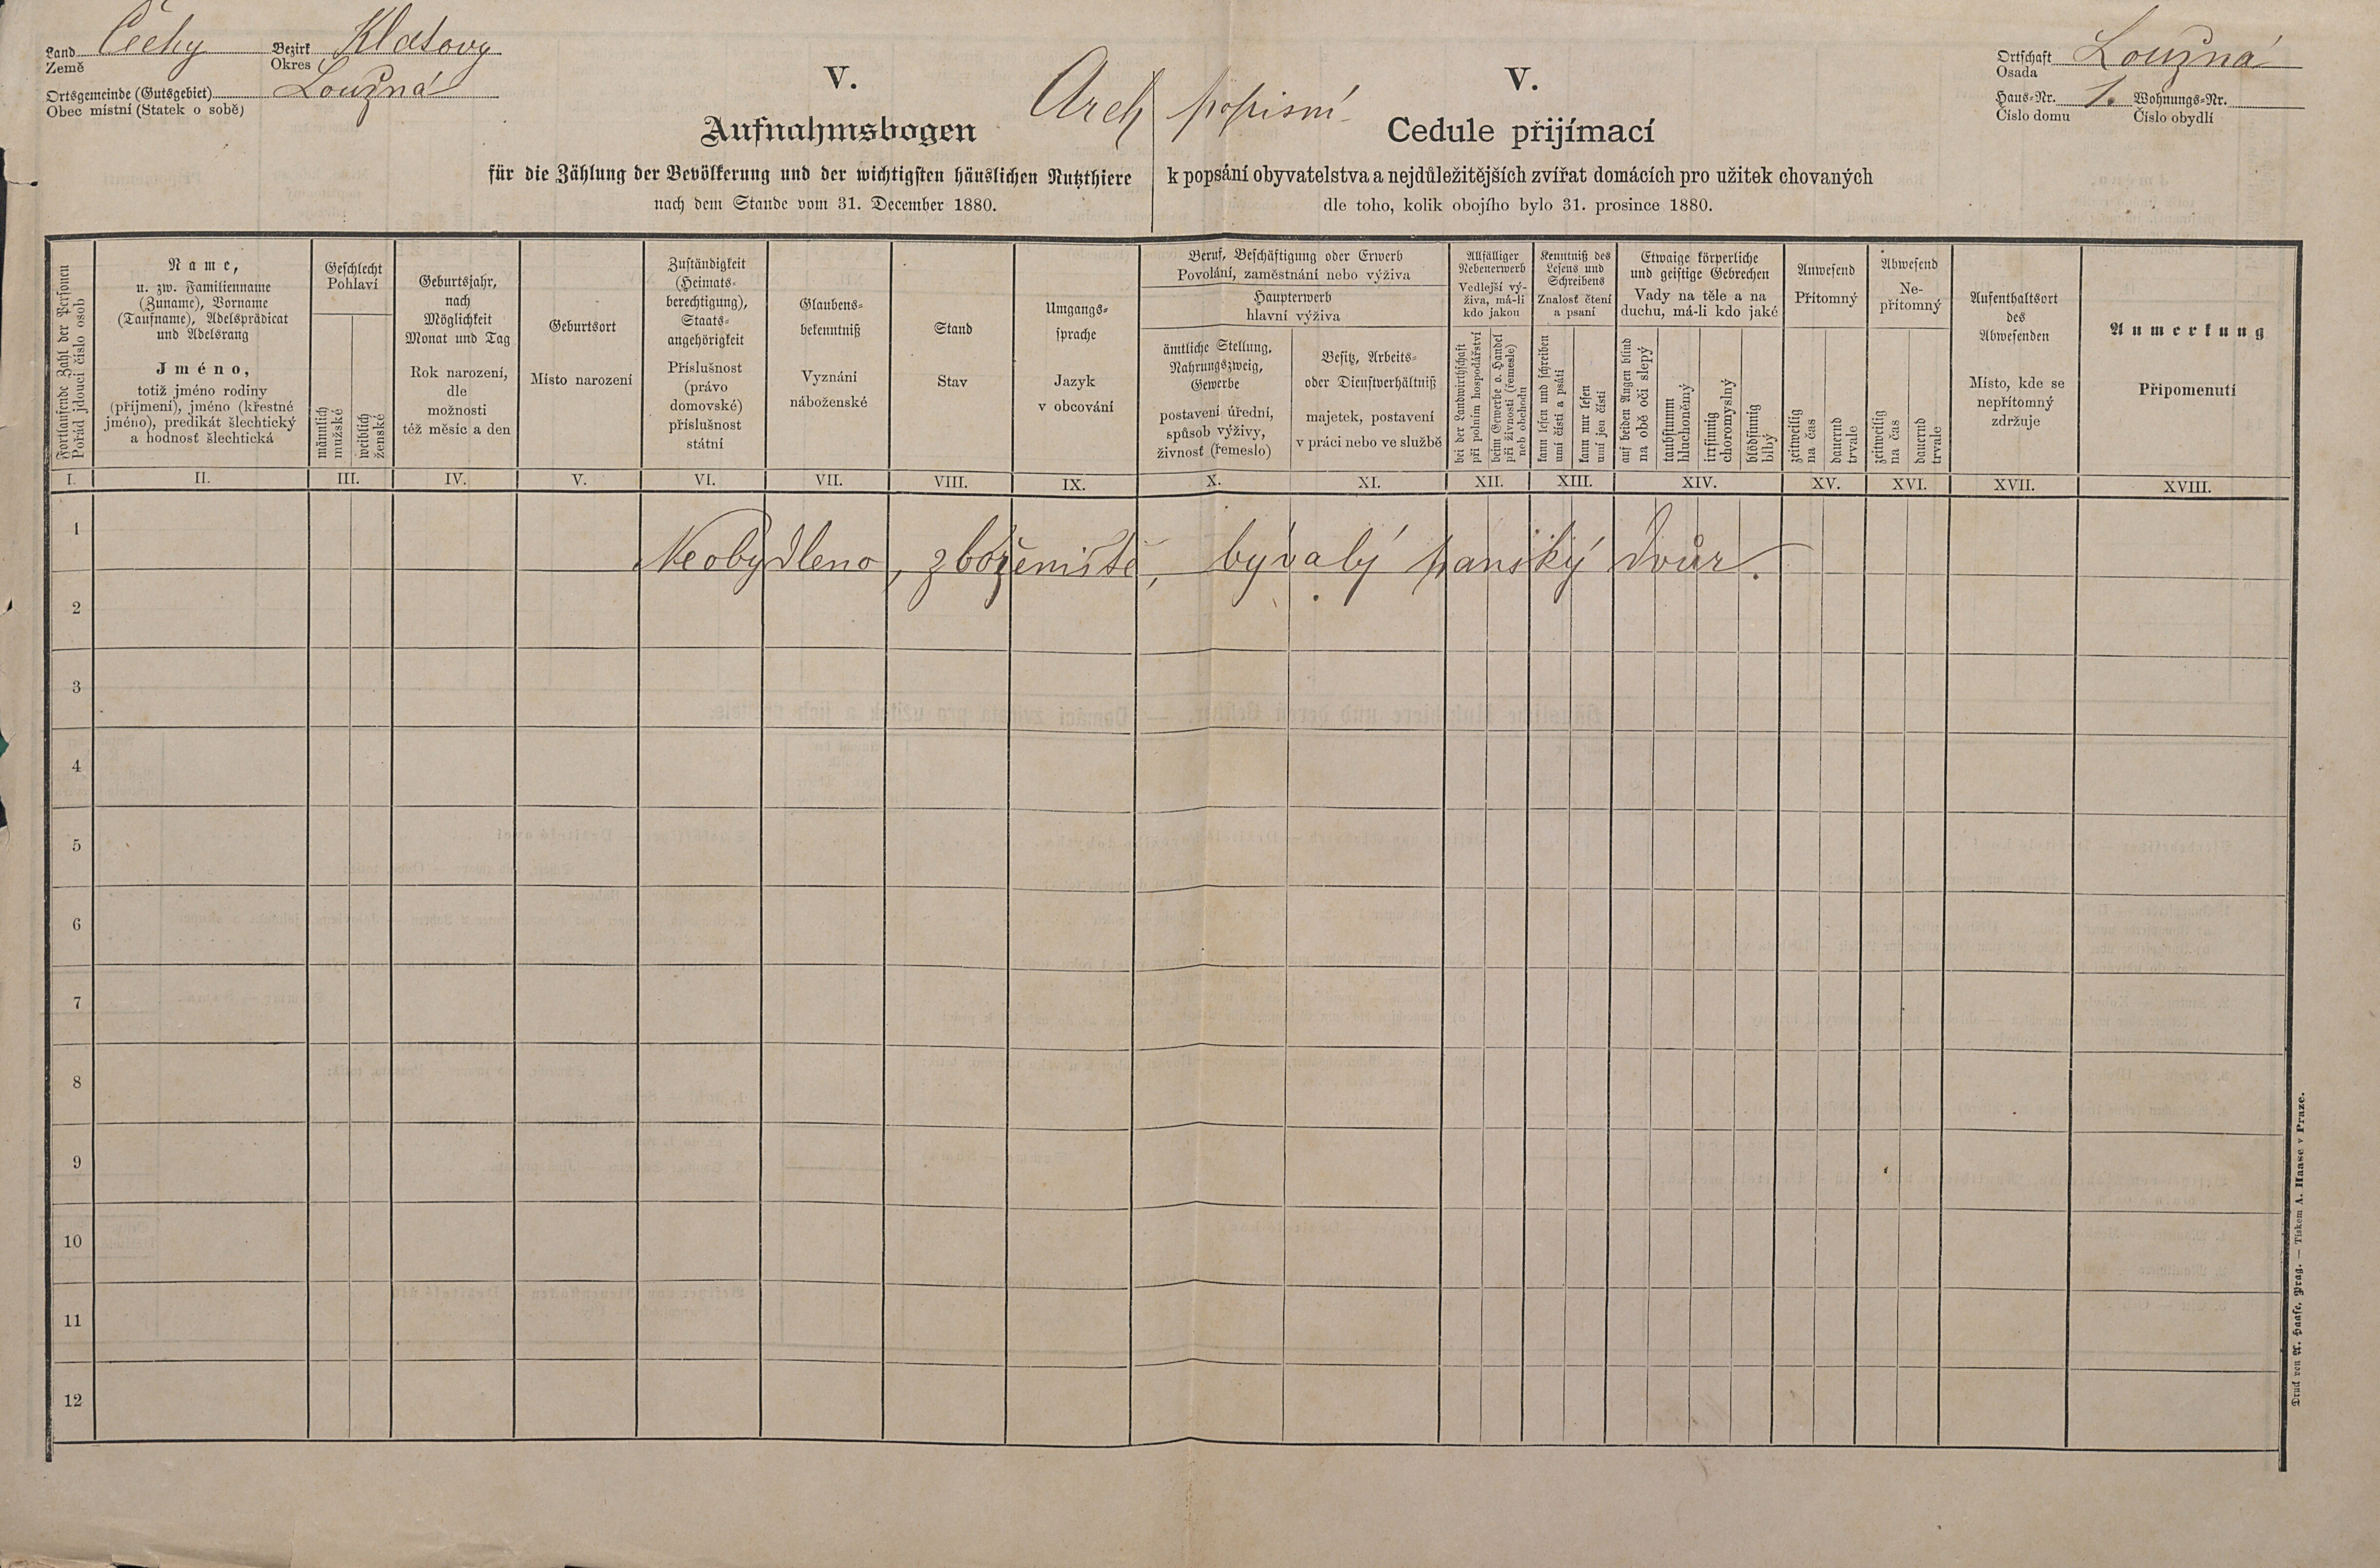 Land Čechy Bezirk Klatovy
Země Okres
Ortsgemeinde (Gutsgebiet) Loužná
Obec místní (Statek o sobě)
Ortschaft Loužná
Osada
Haus-Nr. 1. Wohnungs-Nr.
Číslo domu Číslo obydlí
V.
Aufnahmsbogen
für die Zählung der Bevölkerung und der wichtigsten häuslichen Nutzthiere
nach dem Stande vom 31. December 1880.
Arch popisní
V.
Cedule přijímací
k popsání obyvatelstva a nejdůležitějších zvířat domácích pro užitek chovaných
dle toho, kolik obojího bylo 31. prosince 1880.
Fortlaufende Zahl der Personen
Pořád jdoucí číslo osob
Name,
u. zw. Familienname
(Zuname), Vorname
(Taufname), Adelsprädicat
und Adelsrang
Jméno,
totiž jméno rodiny
(příjmení), jméno (křestné
jméno), predikát šlechtický
a hodnosť šlechtická
Geschlecht
Pohlaví
männlich
mužské
weiblich
ženské
Geburtsjahr,
nach
Möglichkeit
Monat und Tag
Rok narození,
dle
možnosti
též měsíc a den
Geburtsort
Místo narození
Zuständigkeit
(Heimats-
berechtigung),
Staats-
angehörigkeit
Příslušnost
(právo
domovské)
příslušnost
státní
Glaubens-
bekenntniß
Vyznání
náboženské
Stand
Stav
Umgangs-
sprache
Jazyk
v obcování
Beruf, Beschäftigung oder Erwerb
Povolání, zaměstnání nebo výživa
Haupterwerb
hlavní výživa
ämtliche Stellung,
Nahrungszweig,
Gewerbe
postavení úřední,
spůsob výživy,
živnosť (řemeslo)
Besitz, Arbeits-
oder Dienstverhältniß
majetek, postavení
v práci nebo ve službě
Allfälliger
Nebenerwerb
Vedlejší vý-
živa, má-li
kdo jakou
bei der Landwirthschaft
při polním hospodářství
beim Gewerbe o. Handel
při živnosti (řemesle)
neb obchodu
Kenntniß des
Lesens und
Schreibens
Znalosť čtení
a psaní
kann lesen und schreiben
umí čísti a psáti
kann nur lesen
umí jen čísti
Etwaige körperliche
und geistige Gebrechen
Vady na těle a na
duchu, má-li kdo jaké
auf beiden Augen blind
na obě oči slepý
taubstumm
hluchoněmý
irrsinnig
choromyslný
blödsinnig
blbý
Anwesend
Přítomný
zeitweilig
na čas
dauernd
trvale
Abwesend
Ne-
přítomný
zeitweilig
na čas
dauernd
trvale
Aufenthaltsort
des
Abwesenden
Místo, kde se
nepřítomný
zdržuje
Anmerkung
Připomenutí
I. II. III. IV. V. VI. VII. VIII. IX. X. XI. XII. XIII. XIV. XV. XVI. XVII. XVIII.
1
Neobydleno, zboženiště, bývalý panský dvůr.
2
3
4
5
6
7
8
9
10
11
12
Druck von A. Haase, Prag. — Tiskem A. Haase v Praze.